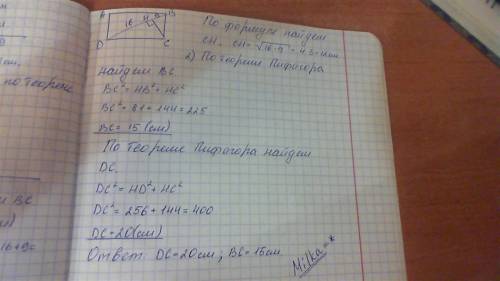 A
B
16
H
9
D
C
По формуле найдем
CH. CH=√16·9 = 4·3=12см
2) По теореме Пифагора
найдем BC
BC²= HB²+ HC²
BC²= 81+144=225
BC= 15(см)
По теореме Пифагора найдем
DC.
DC²= HD²+HC²
DC²= 256+144=400
DC=20(см)
Ответ: DC=20см; BC=15см
Milka=*
по теореме
BC
16+9=